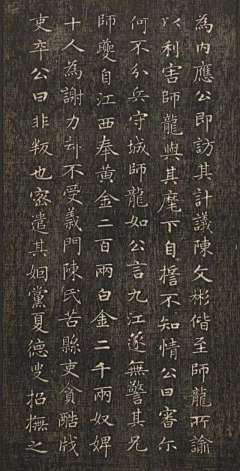 為内應公即訪其計議陳文彬偕至師龍所諭
以利害師龍與其麾下自捨不知情公曰審尔
何不分兵守城師龍如公言九江遂無警其兄
師夔自江西奉黄金二百兩白金二千兩奴婢
十人為謝力却不受義門陳氏苦縣吏貪酷戕
吏卒公曰非叛也密遣其姻黨夏德叟招撫之